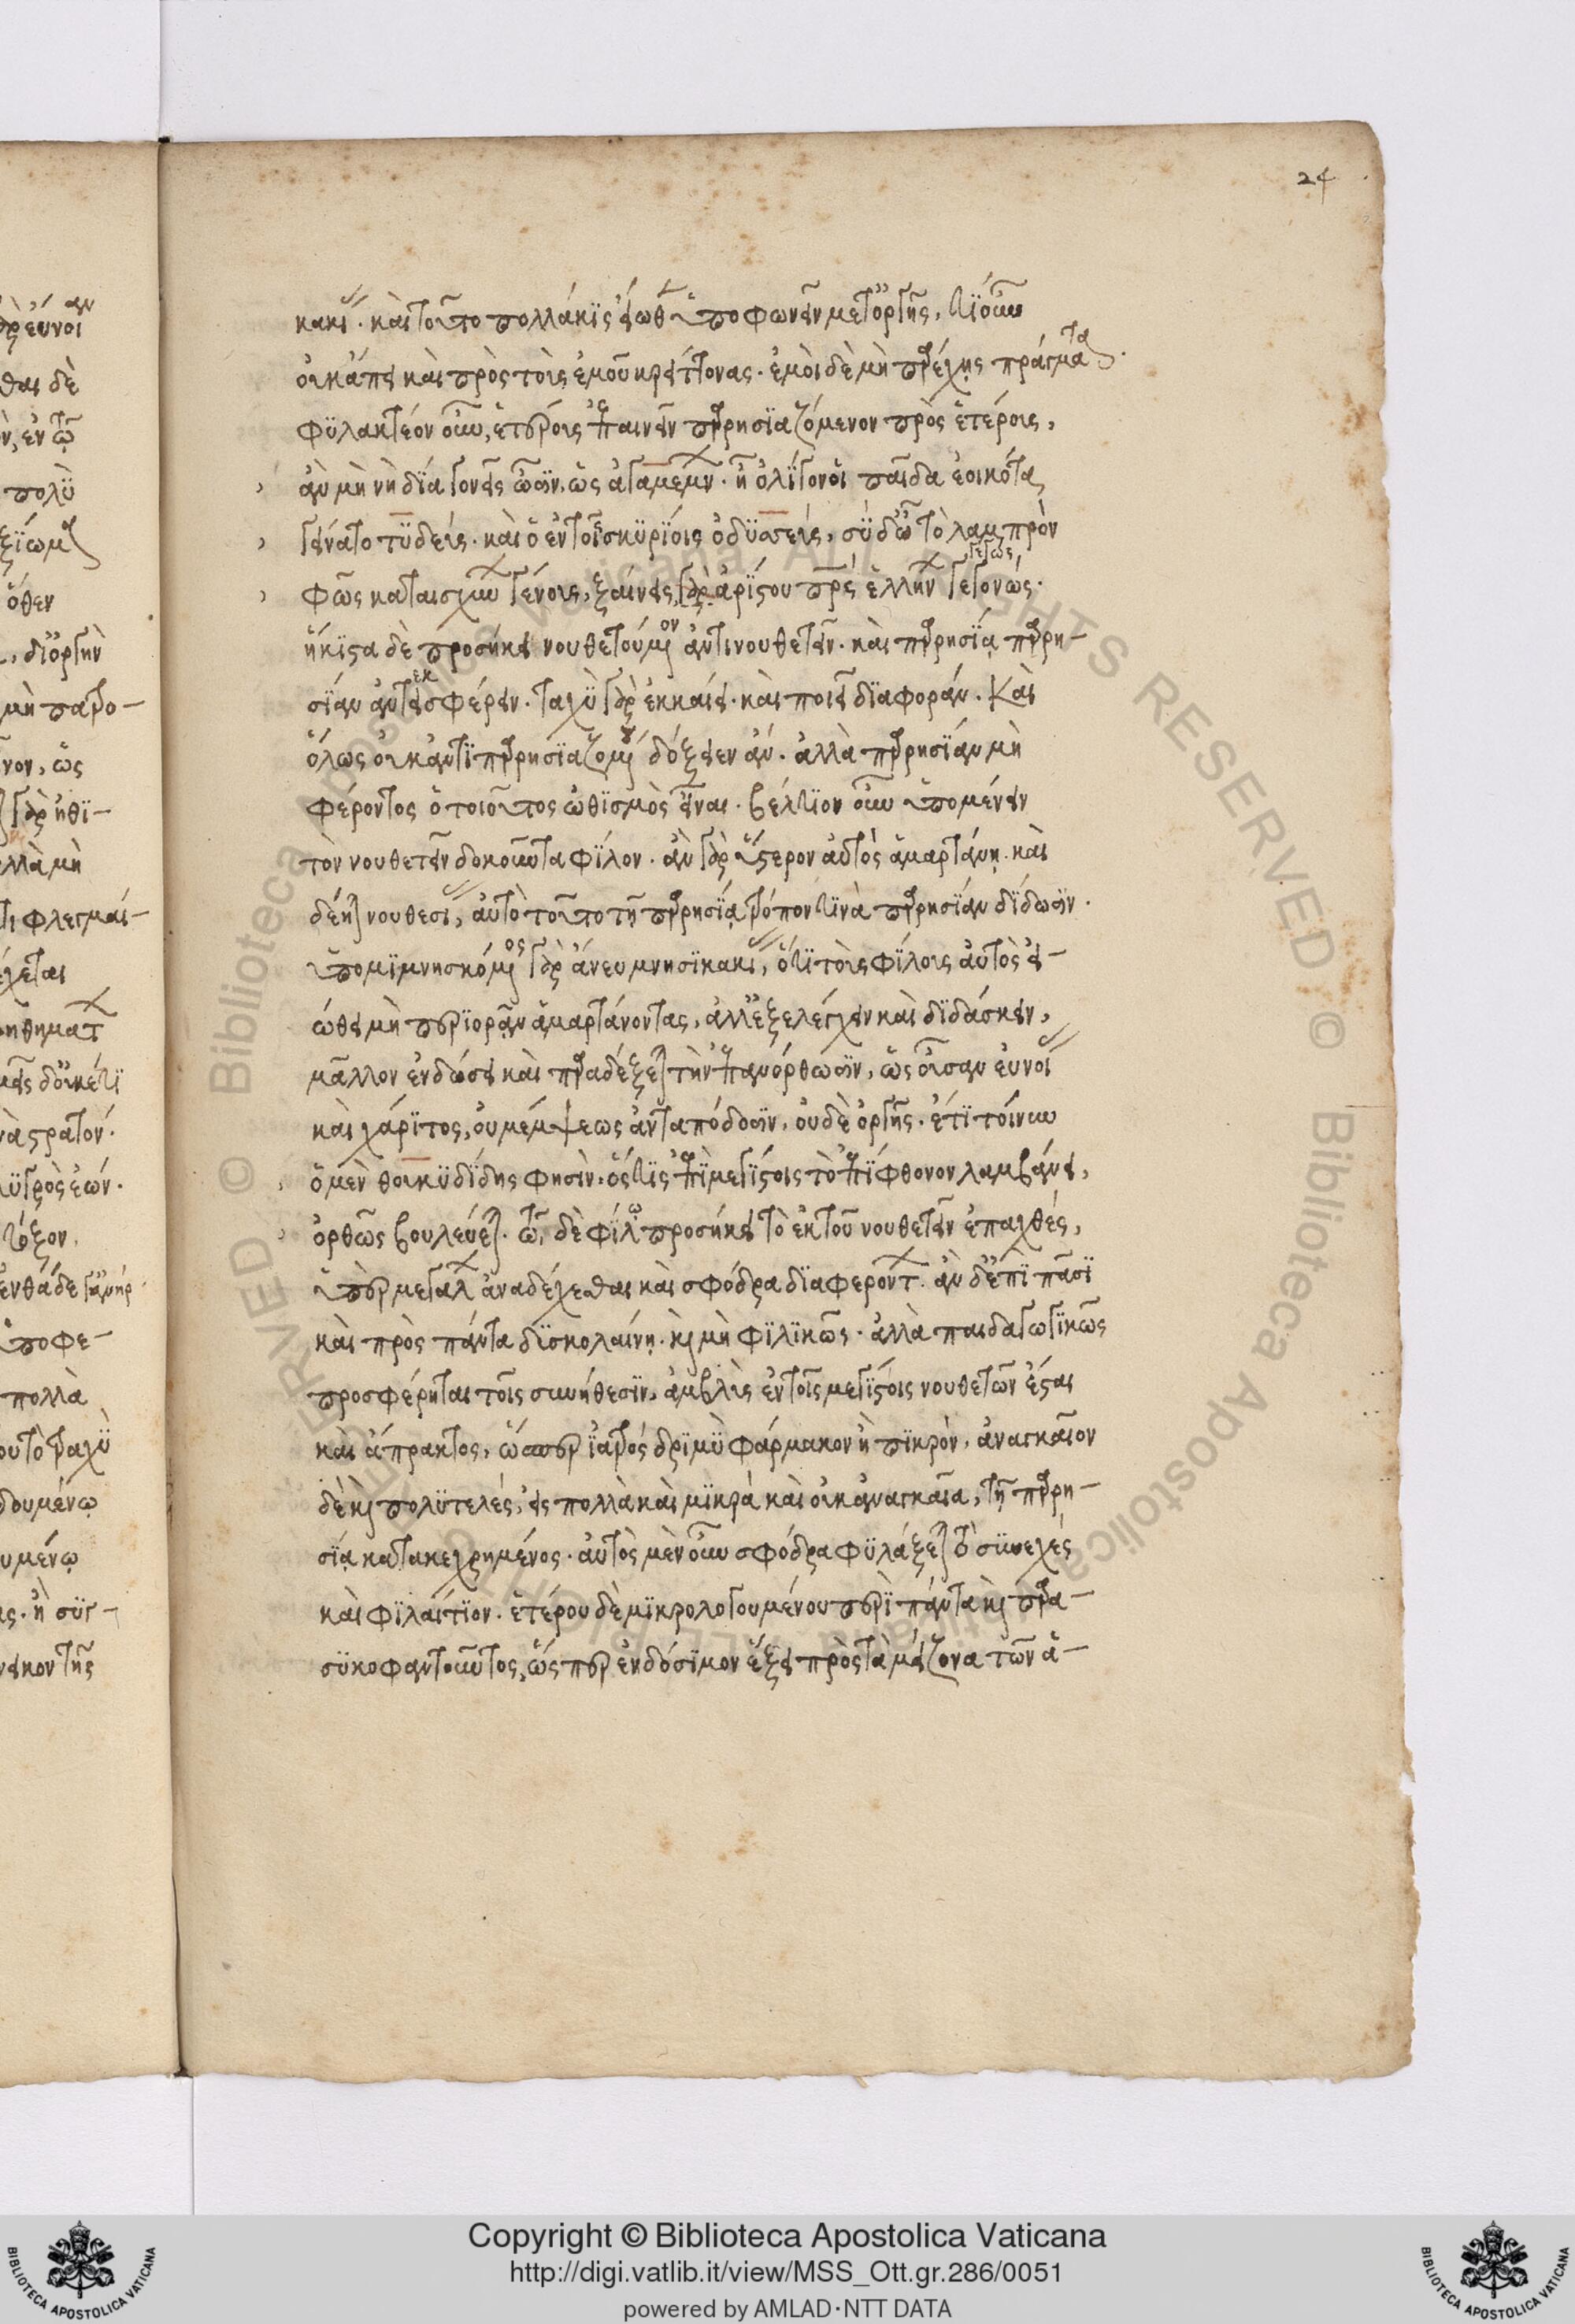 24
κακίας. καὶ τοῦτο πολλάκις εἴωθεν ὑποφωνεῖν μετ' ὀργῆς, τί οὖν
οὐκ ἄπει καὶ πρὸς τοὺς ἐμοῦ κρείττονας. ἐμοὶ δὲ μὴ παρέχῃς πράγματα.
φυλακτέον οὖν, ἑτέρους ἐπαινεῖν παρρησιαζόμενον πρὸς ἑτέρους,
ἂν μὴ νὴ δία γονεῖς ὦσιν, ὡς ἀγαμέμνων. ἢ ὀλίγον οἷ παῖδα ἐοικότα
γείνατο τυδεύς. καὶ ὁ ἐν τοῖς σκυρίοις ὀδυσσεύς, σὺ δ' ὦ τὸ λαμπρὸν
φῶς κατασχύνων γένους, ξαίνεις, γὰρ ἀρίστου πατρὸς ἑλλήνων γεγονώς.
ἥκιστα δὲ προσήκει νουθετούμενον ἀντινουθετεῖν. καὶ παρρησίᾳ παρρη-
σίαν ἀντεισφέρειν. ταχὺ γὰρ ἐκκαίει. καὶ ποιεῖ διαφοράν. καὶ
ὅλως οὐκ ἀντιπαρρησιαζομένου δόξειεν ἄν. ἀλλὰ παρρησίαν μὴ
φέροντος ὁ τοιοῦτος ὠθισμὸς εἶναι. βέλτιον οὖν ὑπομένειν
τὸν νουθετεῖν δοκοῦντα φίλον. ἂν γὰρ ὕστερον αὐτὸς ἁμαρτάνῃ. καὶ
δέηται νουθεσίας, αὐτὸ τοῦτο τῇ παρρησίᾳ τρόπον τινὰ παρρησίαν δίδωσιν.
ὑπομιμνησκόμενος γὰρ ἄνευ μνησικακίας, ὅτι τοὺς φίλους αὐτὸς εἰ-
ώθει μὴ περιορᾷν ἁμαρτάνοντας, ἀλλ' ἐξελέγχειν καὶ διδάσκειν,
μᾶλλον ἐνδώσει καὶ παραδέξεται τὴν ἐπανόρθωσιν, ὡς οὖσαν εὐνοίας
καὶ χάριτος, οὐ μέμψεως ἀνταπόδοσιν, οὐδὲ ὀργῆς. ἔτι τοίνυν
ὁ μὲν θουκυδίδης φησὶν, ὅστις ἐπὶ μεγίστοις τὸ ἐπίφθονον λαμβάνει,
ὀρθῶς βουλεύεται. τῷ δὲ φίλῳ προσήκει τὸ ἐκ τοῦ νουθετεῖν ἐπαχθές,
ὑπὲρ μεγάλων ἀναδέχεσθαι καὶ σφόδρα διαφερόντων. ἂν δ' ἐπὶ πᾶσι
καὶ πρὸς πάντα δυσκολαίνῃ. καὶ μὴ φιλικῶς. ἀλλὰ παιδαγωγικῶς
προσφέρηται τοῖς συνήθεσιν, ἀμβλὺς ἐν τοῖς μεγίστοις νουθετῶν ἔσται
καὶ ἄπρακτος, ὥσπερ ἰατρὸς δριμὺ φάρμακον ἢ πικρὸν, ἀναγκαῖον
δὲ καὶ πολυτελές, εἰς πολλὰ καὶ μικρὰ καὶ οὐκ ἀναγκαῖα, τῇ παρρη-
σίᾳ κατακεχρημένος. αὐτὸς μὲν οὖν σφόδρα φυλάξεται τὸ συνεχές
καὶ φιλαίτιον. ἑτέρου δὲ μικρολογουμένου περὶ πάντα καὶ παρα-
συκοφαντοῦντος, ὥσπερ ἐνδόσιμον ἕξει πρὸς τὰ μείζονα τῶν ἁ-
Copyright © Biblioteca Apostolica Vaticana
http://digi.vatlib.it/view/MSS_Ott.gr.286/0051
powered by AMLAD·NTT DATA